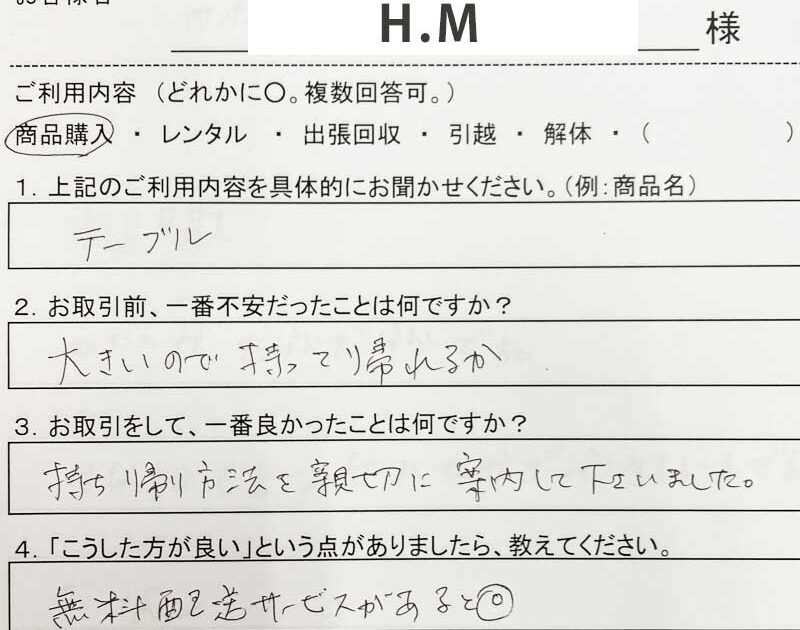 H.M 様
ご利用内容 （どれかに〇。複数回答可。）
商品購入 ・ レンタル ・ 出張回収 ・ 引越 ・ 解体 ・（ ）
1. 上記のご利用内容を具体的にお聞かせください。（例：商品名）
テーブル
2. お取引前、一番不安だったことは何ですか？
大きいので持って帰れるか
3. お取引をして、一番良かったことは何ですか？
持ち帰り方法を親切に案内して下さいました。
4. 「こうした方が良い」という点がありましたら、教えてください。
無料配送サービスがあると◎